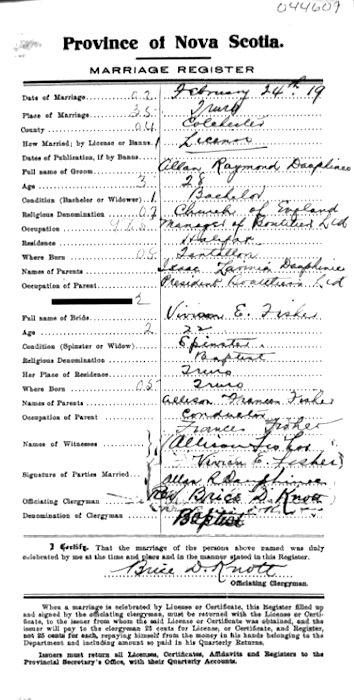 044609
Province of Nova Scotia.
MARRIAGE REGISTER
Date of Marriage 02 February 24th 19
Place of Marriage 35 Truro
County 04 Colchester
How Married; by License or Banns 1 License
Dates of Publication, if by Banns
Full name of Groom Allan Raymond Dauphinee
Age 3 28
Condition (Bachelor or Widower) 1 Bachelor
Religious Denomination 07 Church of England
Occupation Manager of Boutilier Ltd
Residence Halifax
Where Born 05 Tantallon
Names of Parents Isaac Dauphinee
Occupation of Parent President Ltd
2
Full name of Bride Vivian E. Fisher
Age 2 22
Condition (Spinster or Widow) Spinster
Religious Denomination Baptist
Her Place of Residence Truro
Where Born 05 Truro
Names of Parents Allison Frances Fisher
Occupation of Parent Conductor
Names of Witnesses Frances Fisher
Allison Fisher
Signature of Parties Married Vivian E. Fisher
Allan R. Dauphinee
Officiating Clergyman Rev Brice D. Knott
Denomination of Clergyman Baptist
I Certify, That the marriage of the persons above named was duly
celebrated by me at the time and place and in the manner stated in this Register.
Brice D. Knott
Officiating Clergyman.
When a marriage is celebrated by License or Certificate, this Register filled up
and signed by the officiating clergyman, must be returned with the License or Certi-
ficate, to the issuer from whom the said License or Certificate was obtained, and the
issuer will pay to the clergyman 25 cents for License, or Certificate, and Register,
not 25 cents for each, repaying himself from the money in his hands belonging to
the Department and including amount so paid in his Quarterly Returns.
Issuers must return all Licenses, Certificates, Affidavits and Registers to the
Provincial Secretary's Office, with their Quarterly Accounts.